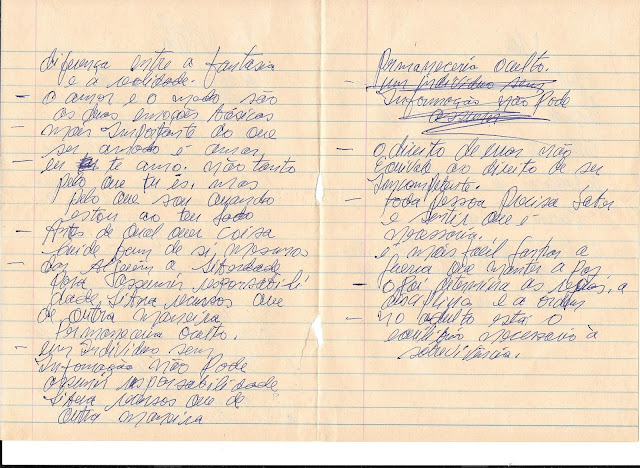 diferença entre a fantasia
e a realidade.
- O amor e o medo são
as duas emoções básicas
- mais importante do que
ser amado é amar
- eu te amo. não tanto
pelo que tu és, mas
pelo que sou quando
estou ao teu lado
- Antes de qual quer coisa
cuide bem de si mesmo
- dar Alguem a liberdade
para assumir responsabili
dade, libera recursos que
de outra maneira
permaneceria oculto.
- um Individuo sem
Informação não Pode
assumir responsabilidade
libera recursos que de
outra maneira
Permaneceria oculto.
- um individuo sem
Informação não Pode
assumir
- o direito de errar não
Equivale ao direito de ser
Incompetente.
- toda Pessoa Precisa Saber
e sentir que é
necessaria.
é mais facil ganhar a
guerra que manter a Paz
- o Pai determina as regras, a
disciplina e a ordem
- no adulto está o
equilibrio necessario à
sobrevivência.